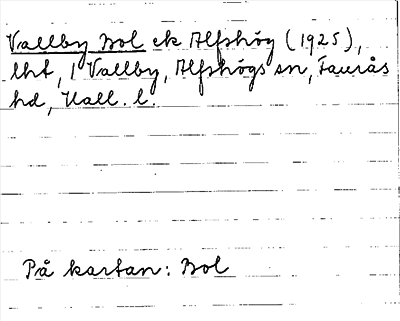 Vallby Bol ek Alfshög (1925),
lht, 1 Vallby, Alfshögs sn, Faurås
hd, Hall. l.
På kartan: Bol